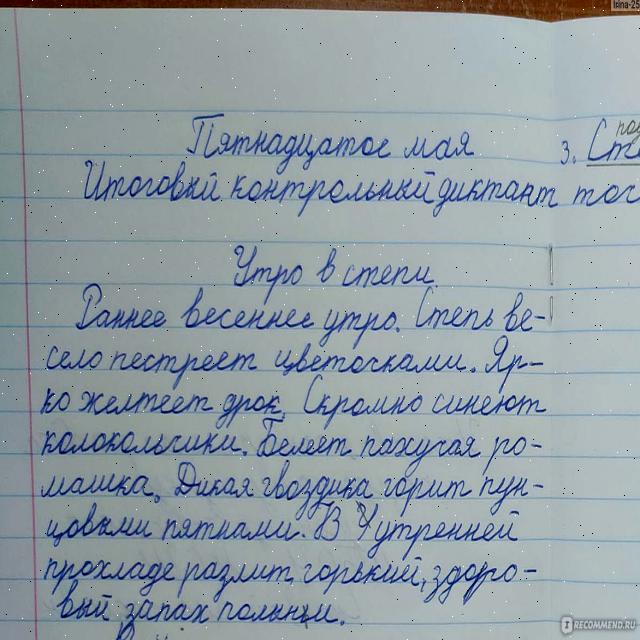 Irina-25
Пятнадцатое мая
Итоговый контрольный диктант
Утро в степи.
Раннее весеннее утро. Степь ве-
село пестреет цветочками. Яр-
ко желтеет дрок. Скромно синеют
колокольчики. Белеет пахучая ро-
машка. Дикая гвоздика горит пун-
цовыми пятнами. В утренней
прохладе разлит горький, здоро-
вый запах полыни.
3.
I RECOMMEND.RU